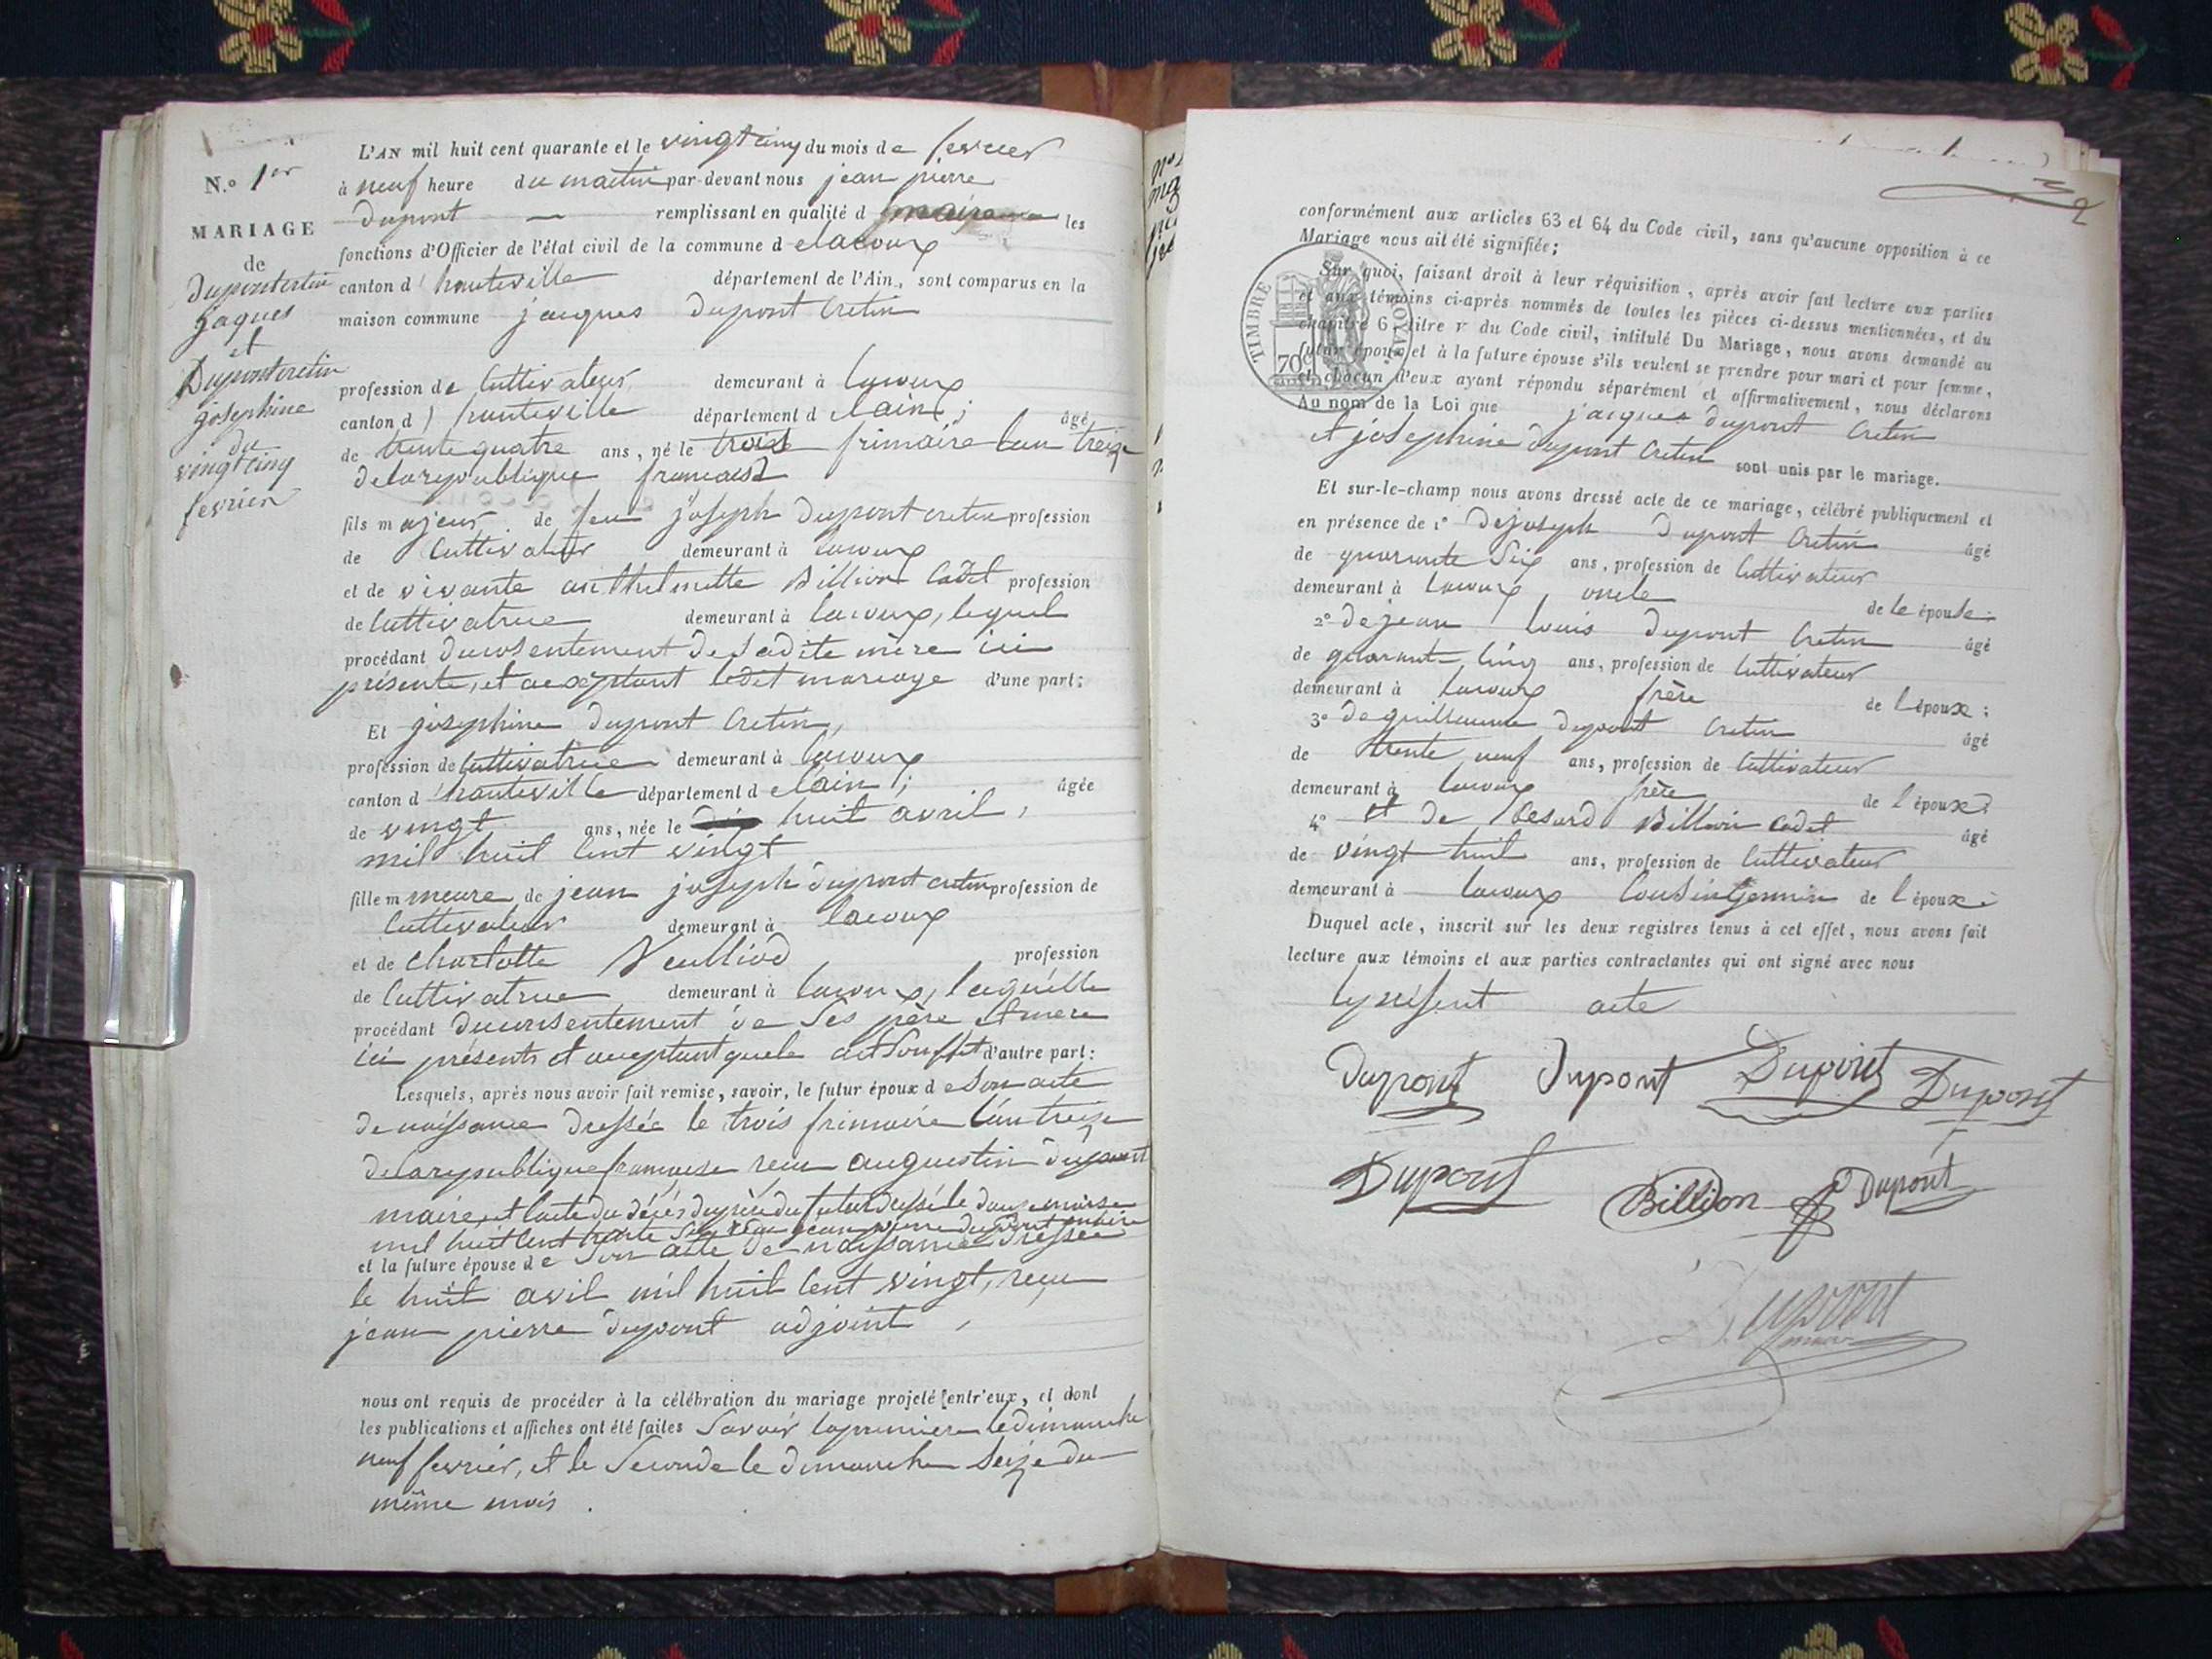 L'AN mil huit cent quarante et le vingt cinq du mois de fevrier
N.o 1er
à neuf heure du matin par-devant nous jean pierre
dupont remplissant en qualité d maire les
MARIAGE
fonctions d'Officier de l'état civil de la commune d elacoux
de
canton d'hauteville département de l'Ain, sont comparus en la
Dupontcretin
jaques
et
Dupontcretin
josephine
du
vingt cinq
fevrier
maison commune jacques Dupont Cretin
profession de Cultivateur demeurant à lacoux
canton d'hauteville département d elain; âgé
de trente quatre ans, né le trois frimaire lan treize
delarepublique francaise
fils majeur de feu joseph Dupont cretin profession
de Cultivateur demeurant à lacoux
et de vivante anthelmette Billion Cadet profession
de Cultivatrice demeurant à lacoux, lequel
procédant duconsentement desadite mère ici
présente, et acceptant ledit mariage d'une part;
Et josephine dupont Cretin,
profession de Cultivatrice demeurant à lacoux
canton d'hauteville département d elain; âgée
de vingt ans, née le huit avril,
mil huit Cent vingt
fille mineure de jean joseph dupont cretin profession de
Cultivateur demeurant à lacoux
et de charlotte profession
de Cultivatrice demeurant à lacoux, laquelle
procédant duconsentement de ses père et mere
ici présents et acceptant d'autre part:
Lesquels, après nous avoir fait remise, savoir, le futur époux d e son acte
denaissance dressée le trois frimaire lan treize
delarepublique francaise recu augustin dupont
maire, et lacte du décès dupère du futur dressé le mars
mil huit Cent trente recu jean pierre dupont maire
et la future épouse d e son acte de naissance dressée
le huit avil mil huit Cent vingt, recu
jean pierre dupont adjoint,
nous ont requis de procéder à la célébration du mariage projeté entr'eux, et dont
les publications et affiches ont été faites Savoir lapremiere ledimanche
neuf fevrier, et le Seconde le dimanche Seize du
même mois.
conformément aux articles 63 et 64 du Code civil, sans qu'aucune opposition à ce
Mariage nous ait été signifiée;
TIMBRE ROYAL
70c
Sur quoi, faisant droit à leur réquisition, après avoir fait lecture aux parties
et aux témoins ci-après nommés de toutes les pièces ci-dessus mentionnées, et du
chapitre 6, titre v du Code civil, intitulé Du Mariage, nous avons demandé au
futur époux et à la future épouse s'ils veulent se prendre pour mari et pour femme,
et chacun d'eux ayant répondu séparément et affirmativement, nous déclarons
Au nom de la Loi que jacques dupont Cretin
et josephine dupont Cretin sont unis par le mariage.
Et sur-le-champ nous avons dressé acte de ce mariage, célébré publiquement et
en présence de 1o Dejoseph Dupont Cretin âgé
de quarante Six ans, profession de Cultivateur
demeurant à lacoux, oncle de le épouse
2o de jean louis dupont Cretin âgé
de quarante cinq ans, profession de Cultivateur
demeurant à lacoux frère de l'époux;
3o de guillaume dupont Cretin âgé
de trente neuf ans, profession de Cultivateur
demeurant à lacoux frère de l'époux
4o et de Billion Cadet âgé
de vingt huit ans, profession de Cultivateur
demeurant à lacoux Cousin Germin de l'époux
Duquel acte, inscrit sur les deux registres tenus à cet effet, nous avons fait
lecture aux témoins et aux parties contractantes qui ont signé avec nous
acte
Dupont Dupont Dupont Dupont
Dupont Billion Dupont
Dupont
maire